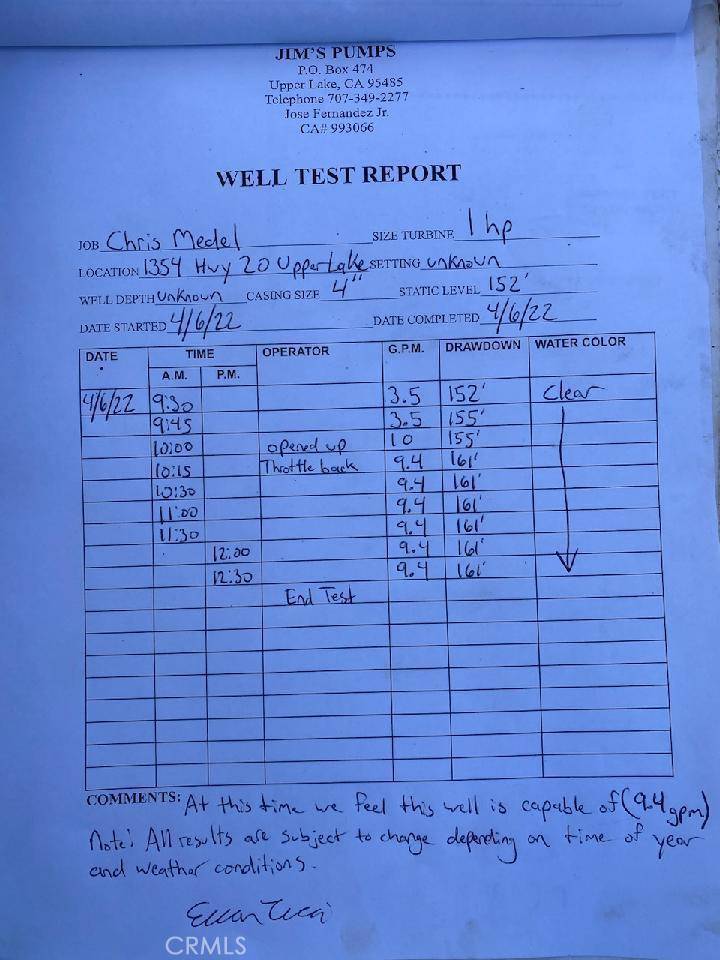 JIM'S PUMPS
P.O. Box 474
Upper Lake, CA 95485
Telephone 707-349-2277
Jose Fernandez Jr.
CA# 993066
WELL TEST REPORT
JOB Chris Medel SIZE TURBINE 1 hp
LOCATION 1354 Hwy 20 Upper Lake SETTING unknown
WELL DEPTH unknown CASING SIZE 4" STATIC LEVEL 152'
DATE STARTED 4/6/22 DATE COMPLETED 4/6/22
DATE TIME OPERATOR G.P.M. DRAWDOWN WATER COLOR
A.M. P.M.
4/6/22 9:30 3.5 152' Clear
9:45 3.5 155'
10:00 opened up 10 155'
10:15 Throttle back 9.4 161'
10:30 9.4 161'
11:00 9.4 161'
11:30 9.4 161'
12:00 9.4 161'
12:30 9.4 161'
End Test
COMMENTS: At this time we feel this well is capable of (9.4 gpm)
Note: All results are subject to change depending on time of year
and weather conditions.
CRMLS